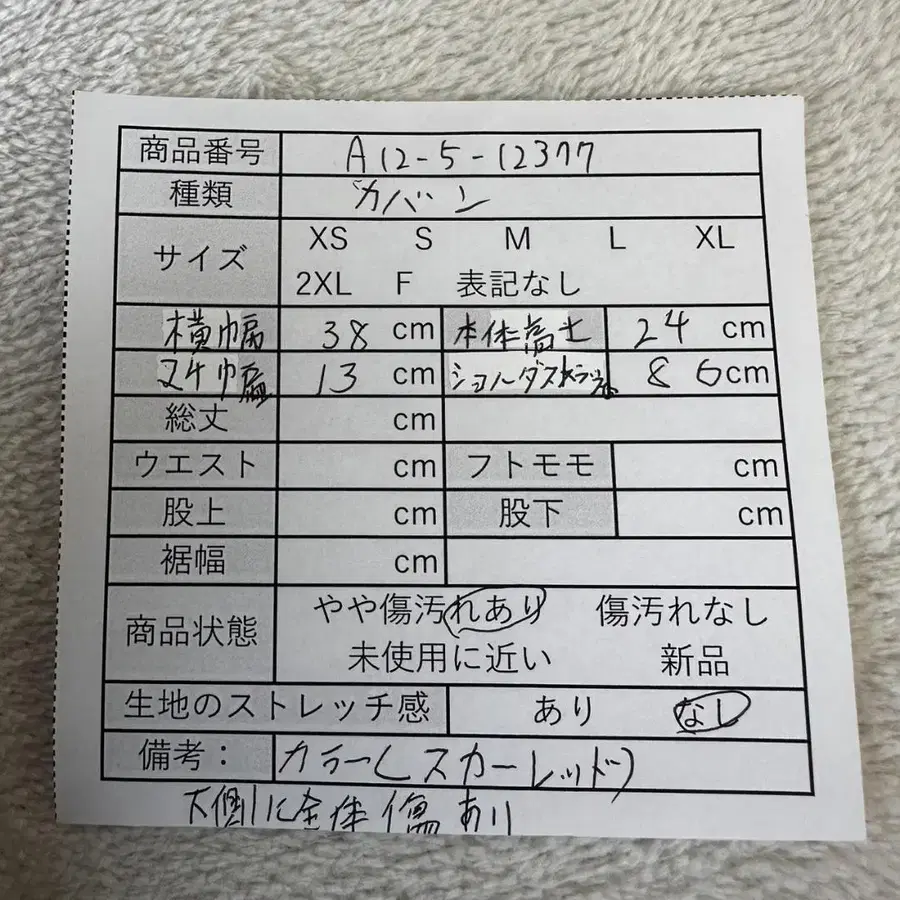 商品番号 A12-5-12377
種類 カバン
サイズ XS S M L XL
2XL F 表記なし
横幅 38 cm 本体高士 24 cm
マチ巾畐 13 cm ショルダストラップ 86cm
総丈 cm
ウエスト cm フトモモ cm
股上 cm 股下 cm
裾幅 cm
商品状態 やや傷汚れあり 傷汚れなし
未使用に近い 新品
生地のストレッチ感 あり なし
備考: カラー(スカーレッド)
下側に全体傷あり